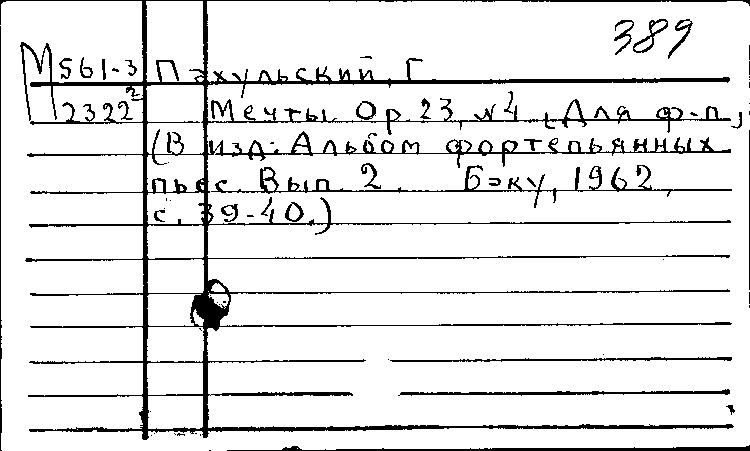 389
М 561-3 Пахульский, Г.
2322² Мечты. Ор. 23, №4 [Для ф.-п.]
(В изд.: Альбом фортепьянных
пьес. Вып. 2. Баку, 1962,
с. 39-40.)